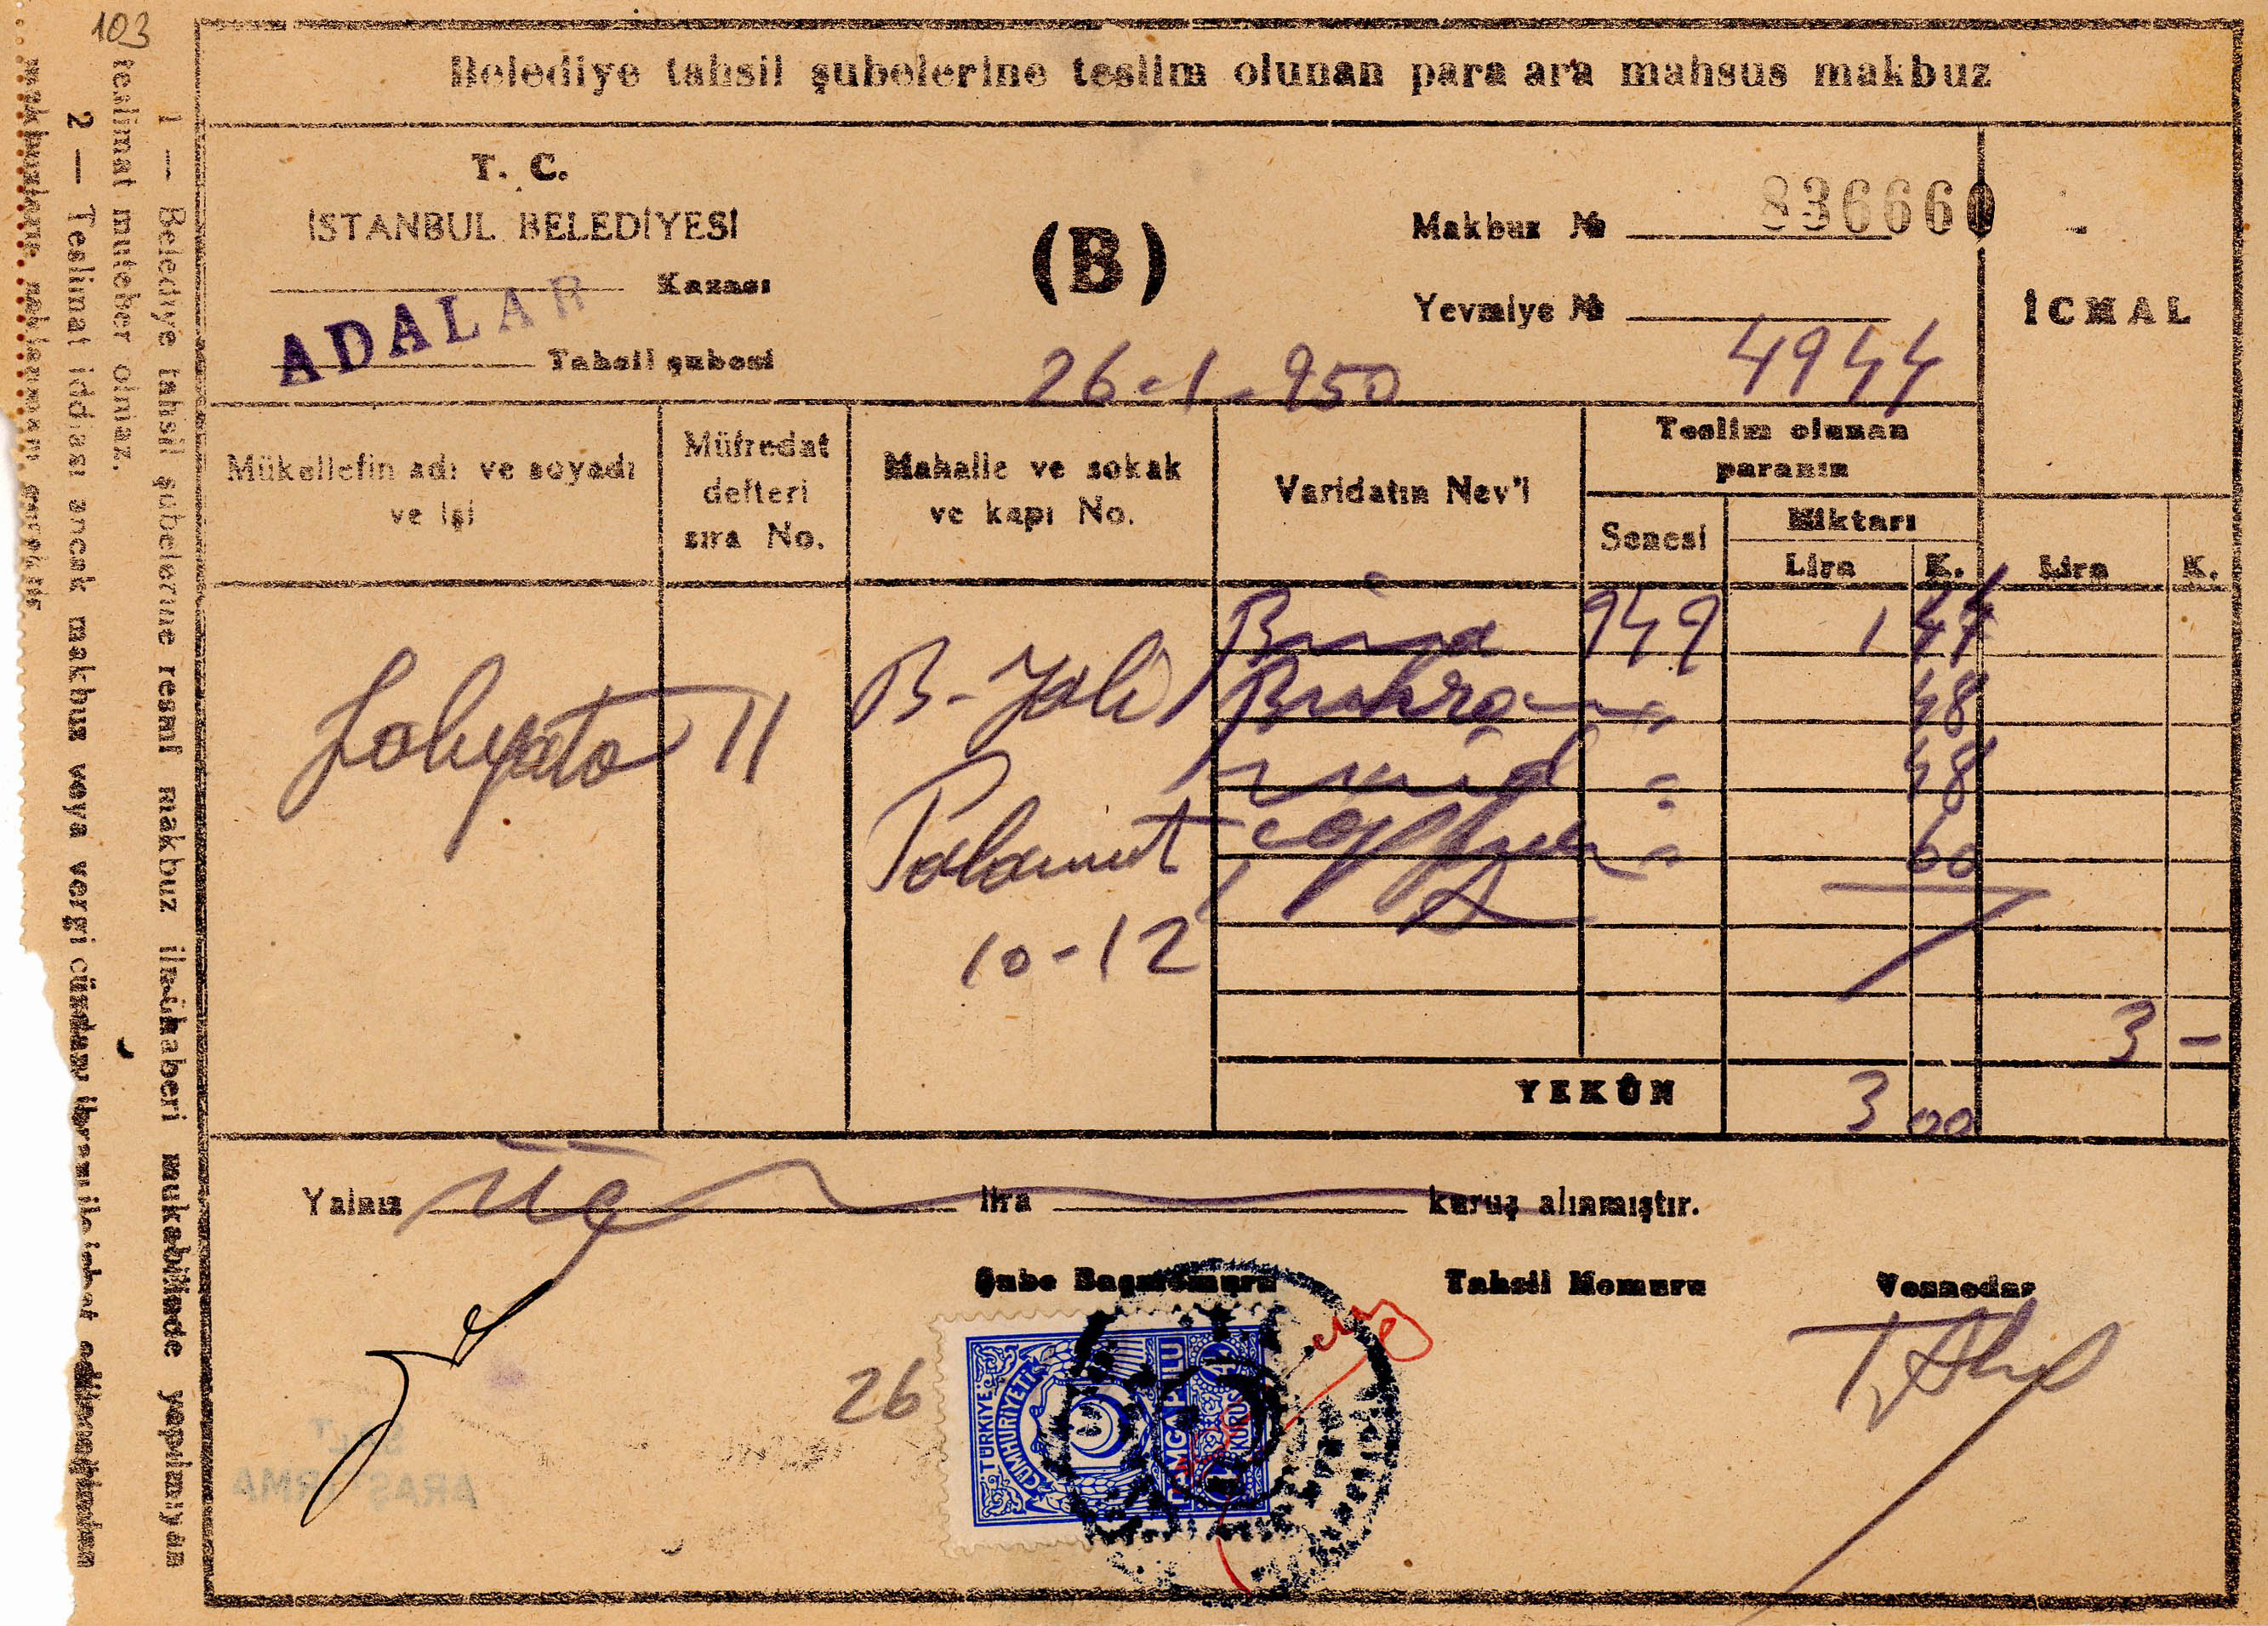 103
Belediye tahsil şubelerine teslim olunan para ara mahsus makbuz
T. C.
İSTANBUL BELEDİYESİ
Kazası
ADALAR
Tahsil şubesi
(B)
26-1-950
Makbuz № 836660
Yevmiye №
4944
İCMAL
Mükellefin adı ve soyadı ve işi
Müfredat defteri sıra No.
Mahalle ve sokak ve kapı No.
Varidatın Nev'i
Teslim olunan paranın
Senesi
Miktarı
Lira K.
Lira K.
Bina 949 1 44
48
48
60
11
B-Yalı
Palamut
10-12
3 -
YEKÛN 3 00
Yalnız üç lira kuruş alınmıştır.
Şube Başmemuru
Tahsil Memuru
Veznedar
26
TÜRKİYE
CUMHURİYETİ
DAMGA PULU
KURUŞ
1 — Belediye tahsil şubelerine resmî makbuz ilmühaberi mukabilinde yapılmıyan
teslimat muteber olmaz.
2 — Teslimat iddiası ancak makbuz veya vergi cüzdanı ibrazı ile isbat edileceğinden
makbuzların saklanması gerekir